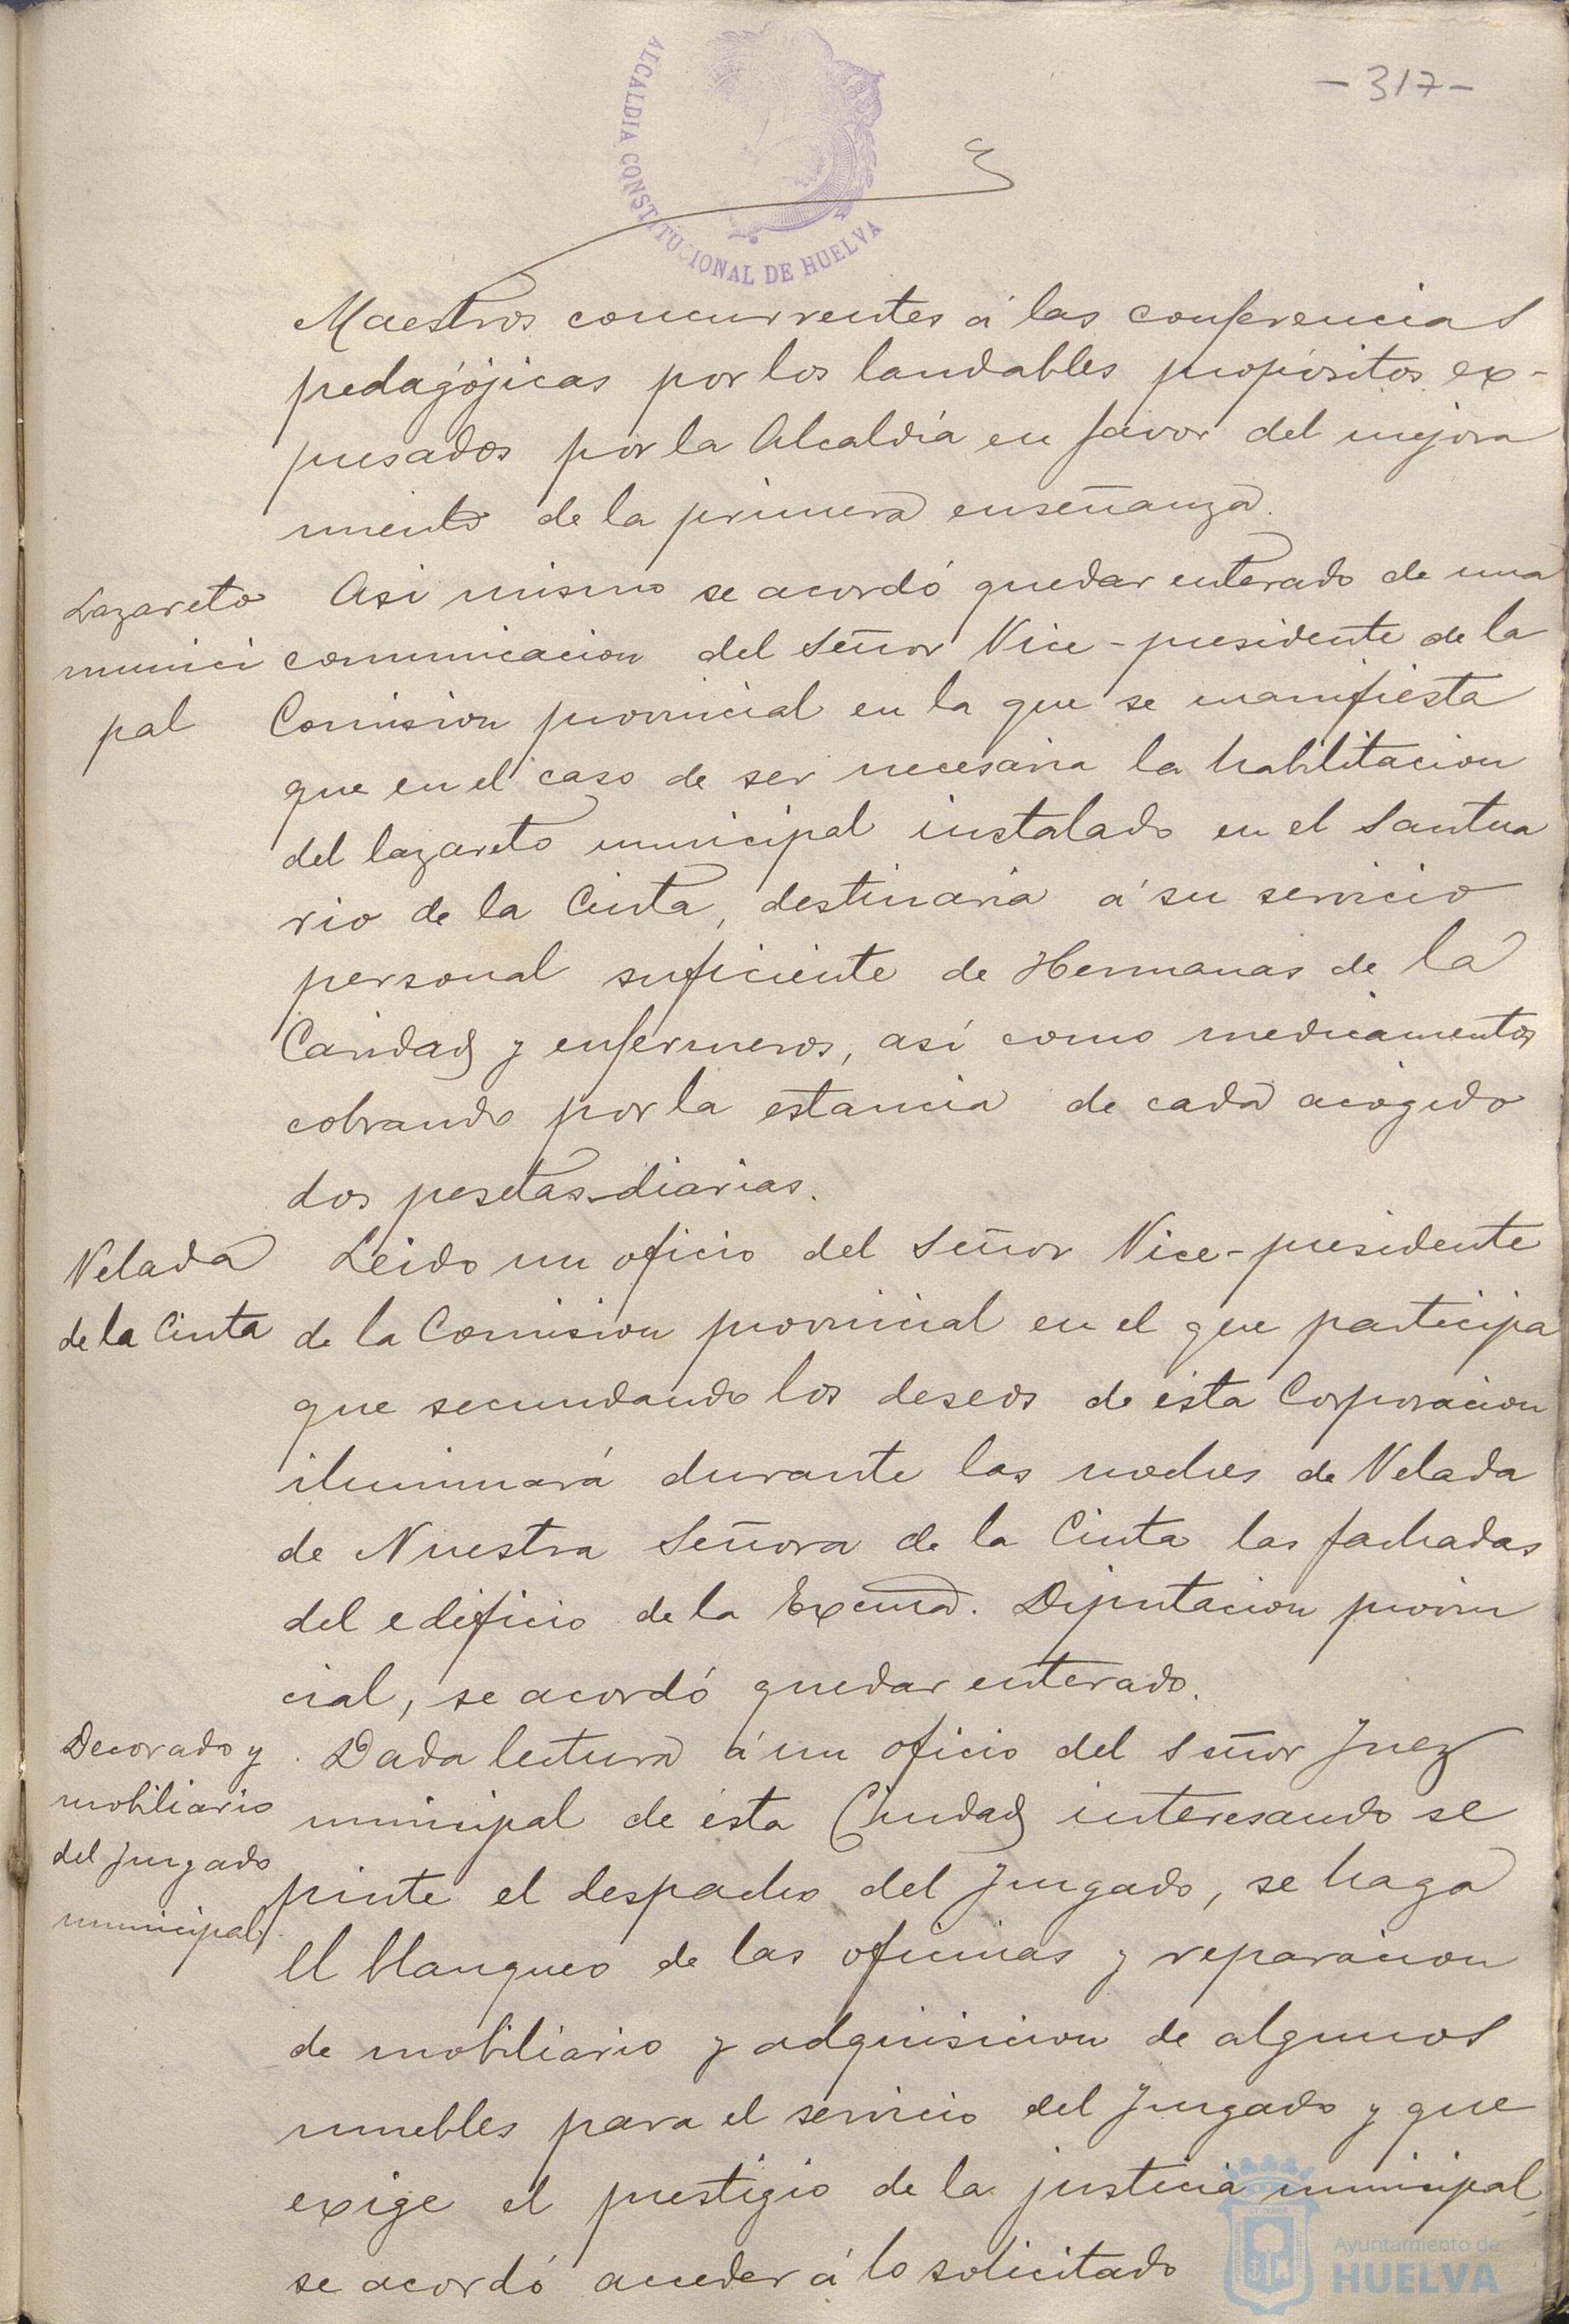 -317-
ALCALDIA CONSTITUCIONAL DE HUELVA
Maestros concurrentes á las conferencias
pedagójicas por los laudables propósitos ex-
presados por la Alcaldía en favor del mejora
miento de la primera enseñanza.
Lazareto
munici
pal
Asi mismo se acordó quedar enterado de una
comunicacion del Señor Vice-presidente de la
Comision provincial en la que se manifiesta
que en el caso de ser necesaria la habilitacion
del lazareto municipal instalado en el Santua
rio de la Cinta, destinaria á su servicio
personal suficiente de Hermanas de la
Caridad y enfermeros, así como medicamentos
cobrando por la estancia de cada acogido
dos pesetas diarias.
Velada
de la Cinta
Leido un oficio del Señor Vice-presidente
de la Comision provincial en el que participa
que secundando los deseos de ésta Corporacion
iluminará durante las noches de Velada
de Nuestra Señora de la Cinta las fachadas
del edificio de la Excma. Diputacion provin
cial, se acordó quedar enterado.
Decorado y
mobiliario
del juzgado
municipal.
Dada lectura á un oficio del Señor Juez
municipal de ésta Ciudad interesando se
pinte el despacho del Juzgado, se haga
el blanqueo de las oficinas y reparacion
de mobiliario y adquisicion de algunos
muebles para el servicio del Juzgado y que
exige el prestigio de la justicia municipal,
se acordó acceder á lo solicitado
Ayuntamiento de
HUELVA